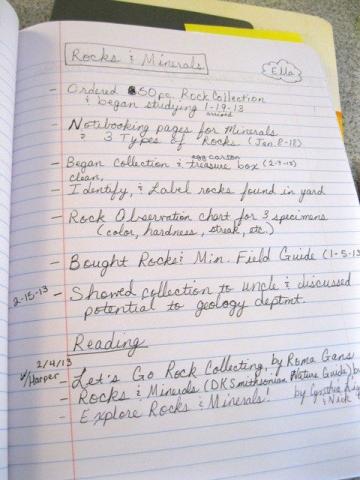 Rocks & Minerals
Ella
- Ordered 50 pc. Rock Collection
& began studying 1-19-13
arrived
- Notebooking pages for Minerals
& 3 Types of Rocks. (Jan. 8-18)
- Began collection & egg carton treasure box (2-9-13)
clean,
- Identify, & Label rocks found in yard
- Rock Observation chart for 3 specimens
(color, hardness, streak, etc.)
- Bought Rocks & Min. Field Guide (1-5-13)
2-15-13 - Showed collection to uncle & discussed
potential to geology deptmt.
Reading
2/4/13
w/Harper - Let's Go Rock Collecting, by Roma Gans
- Rocks & Minerals (DK Smithsonian Nature Guide) by
- Explore Rocks & Minerals! by Cynthia
& Nick